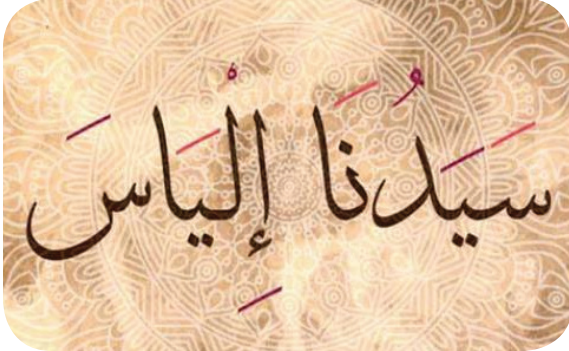 سَيَدُنَا إِلْيَاسَ